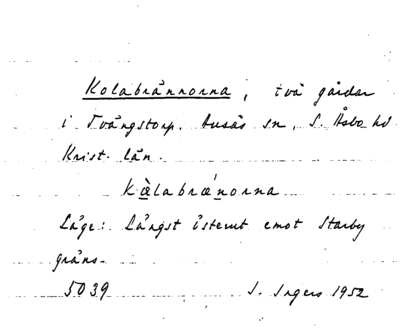 Kolabrännorna, två gårdar
i Tvångstorp. Ausås sn, S. Åsbo hd
Krist. län.
kàlabræ´norna
Läge: Längst österut emot Starby
gräns.
5039 I. Ingers 1952